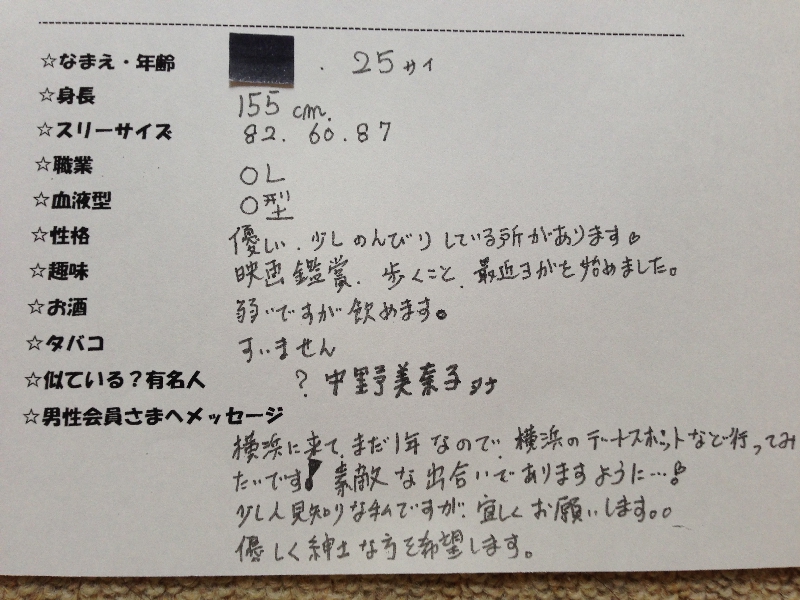 ☆なまえ・年齢 . 25サイ
☆身長 155 cm.
☆スリーサイズ 82. 60. 87
☆職業 OL
☆血液型 O型
☆性格 優しい、少しのんびりしている所があります。
☆趣味 映画鑑賞、歩くこと、最近ヨガを始めました。
☆お酒 弱いですが飲めます。
☆タバコ すいません
☆似ている?有名人 ? 中野美奈子
☆男性会員さまへメッセージ
横浜に来て、まだ1年なので、横浜のデートスポットなど行ってみ
たいです! 素敵な出合いでありますように…!
少し人見知りな私ですが、宜しくお願いします。。
優しく紳士な方を希望します。